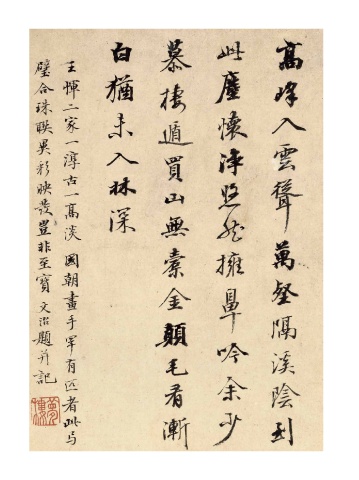 高峰入雲聳萬壑隔溪陰到
此塵懷淨悠然擁鼻吟余少
慕棲遁買山無橐金顛毛看漸
白猶未入林深
王惲二家一淳古一高淡國朝畫手罕有匹者此与
璧合珠聯異彩映發豈非至寶文治題并記
夢樓